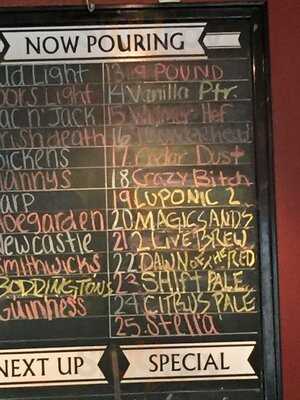 NOW POURING
ud Light 13 9 POUND
oors Light 14 Vanilla Ptr.
ac n' Jack 15 Widmer Hef
rishdeath 16
ickens 17. Cedar Dust
annys 18 Crazy Bitch
arp 19 LUPONIC 2
oegarden 20 MAGIC SANDS
ewcastle 21 2 LIVE BREW
Smithwicks 22 DAWN OF THE RED
BODDINGTONS 23 SHIFT PALE
Guinness 24 CITRUS PALE
25. Stella
NEXT UP SPECIAL